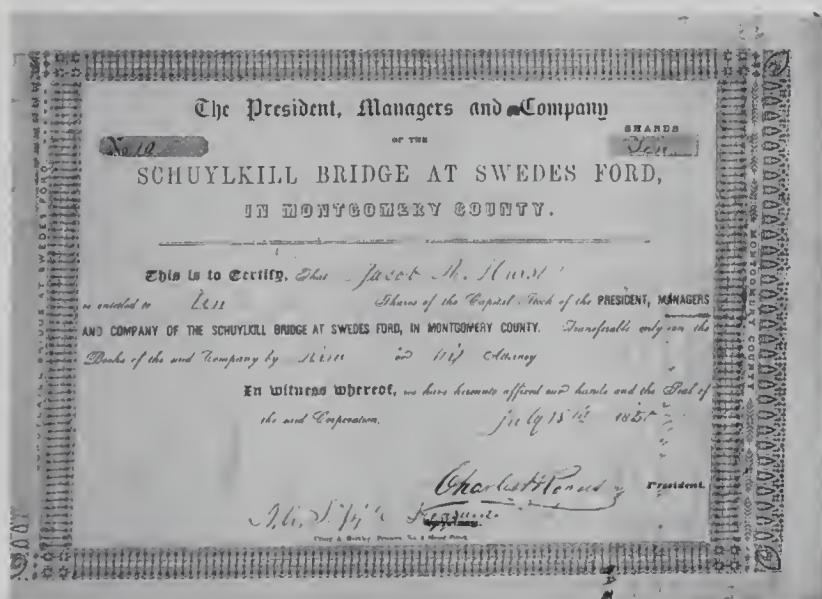 The President, Managers and Company
OF THE
No 10
SHARES
Ten
SCHUYLKILL BRIDGE AT SWEDES FORD,
IN MONTGOMERY COUNTY.
This is to Certify, That Jacob M. Hurst
is entitled to Ten Shares of the Capital Stock of the PRESIDENT, MANAGERS
AND COMPANY OF THE SCHUYLKILL BRIDGE AT SWEDES FORD, IN MONTGOMERY COUNTY. Transferable only on the
Books of the said Company by him or his Attorney
In witness whereof, we have hereunto affixed our hands and the Seal of
the said Corporation. July 15th
President.
SCHUYLKILL BRIDGE AT SWEDES FORD
MONTGOMERY COUNTY